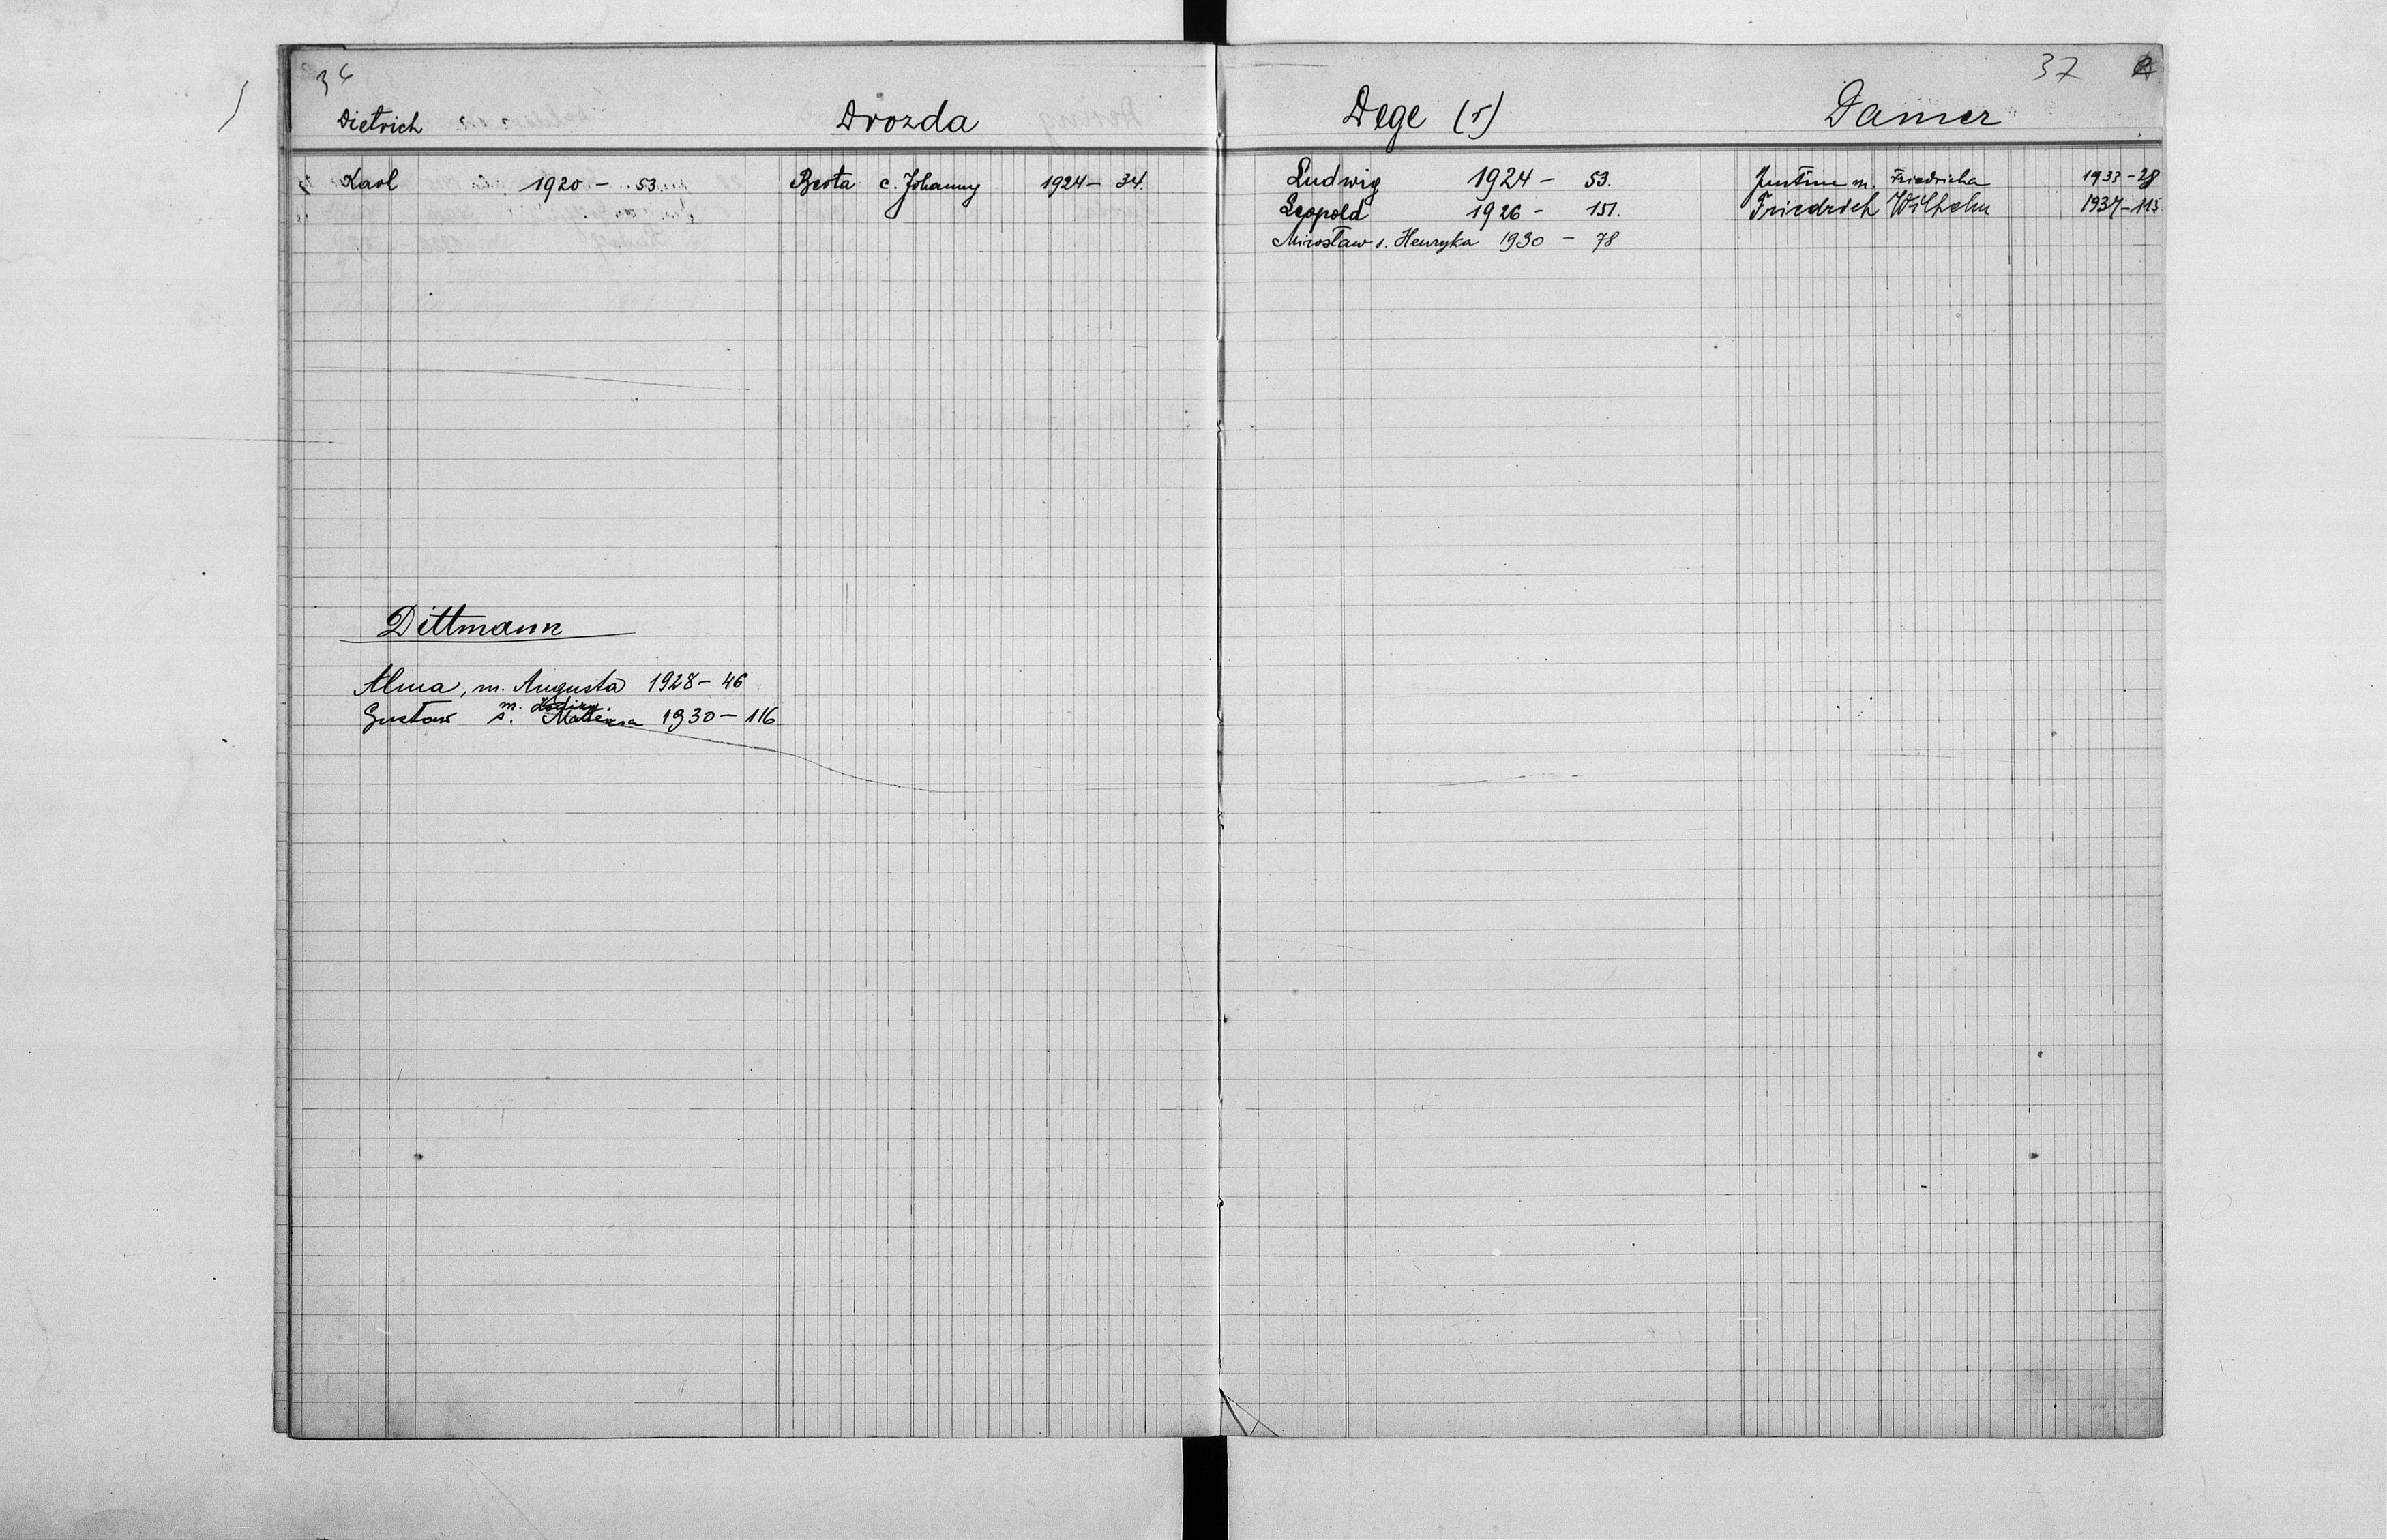 36
Dietrich
Drozda
Karl 1920 - 53.
Berta c. Johanny 1924 - 34.
Dittmann
Alma, m. Augusta 1928 - 46
m.
Gustaw s. 1930 - 116
37
Dege (r)
Damer
Ludwig 1924 - 53.
Leopold 1926 - 151.
Mirosław s. Henryka 1930 - 78
m. Friedricha 1933 - 28
Friedrich Wilhelm 1937 - 115